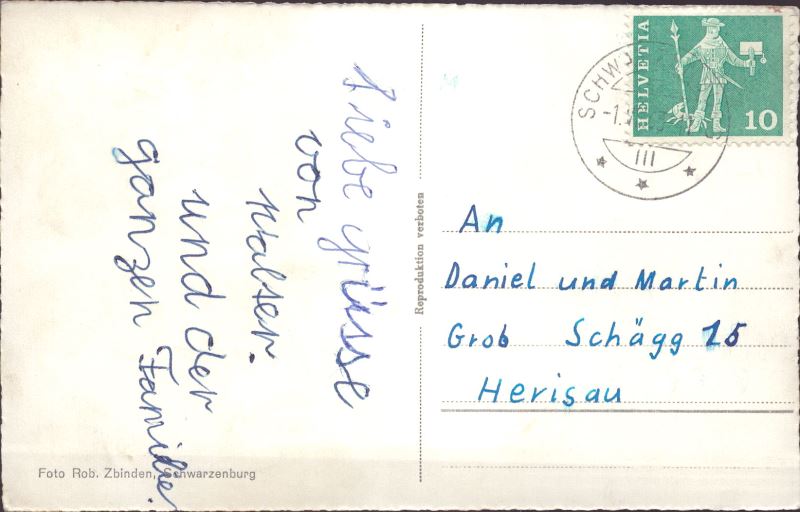 Liebe grüsse
von
Walter.
und der
ganzen Familie.
Foto Rob. Zbinden, Schwarzenburg
Reproduktion verboten
HELVETIA
10
An
Daniel und Martin
Grob Schägg 15
Herisau